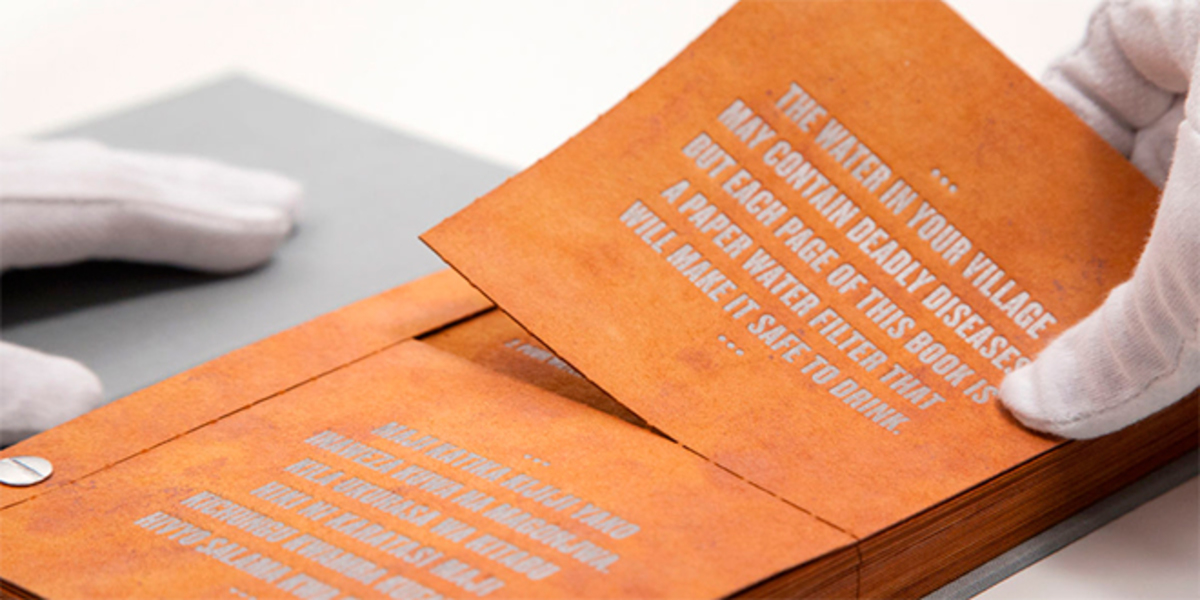 ...
THE WATER IN YOUR VILLAGE
MAY CONTAIN DEADLY DISEASES
BUT EACH PAGE OF THIS BOOK IS
A PAPER WATER FILTER THAT
WILL MAKE IT SAFE TO DRINK.
...
...
MAJI KATIKA KIJIJI YAKO
INAWEZA KUWA NA MAGONJWA.
KILA UKURASA WA KITABU
HIKI NI KARATASI MAJI
KWAMBA
HIVYO SALAMA KWA